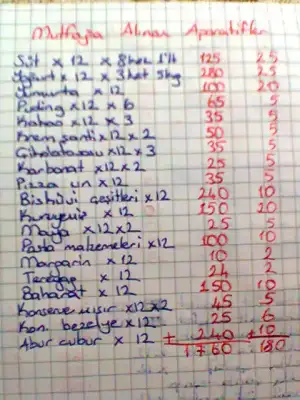 Mutfağa Alınan Aparatifler
Süt x 12 x 8kez 1'lt 125 25
Yoğurt x 12 x 3ket 5kg 280 25
Yumurta x 12 100 20
Puding x12 x 6 65 5
Kakao x12 x 3 35 5
Krem şanti x 12 x 2 50 5
Çikolatasos x12 x 3 35 5
Karbonat x12x2 25 5
Pizza un x12 35 5
Bisküvi çeşitleri x12 240 10
Kuruyemiş x 12 150 20
Maya x12x2 25 5
Pasta malzemeleri x12 100 10
Margarin x 12 10 2
Tereyağ x 12 24 2
Baharat x 12 150 10
Konserve mısır x12x2 45 5
Kon. bezelye x12 25 6
Abur cubur x 12 + 240 + 10
1760 180